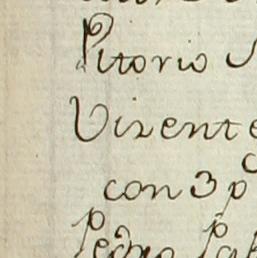 Pitorio
Visente
con 3 p
Pedro